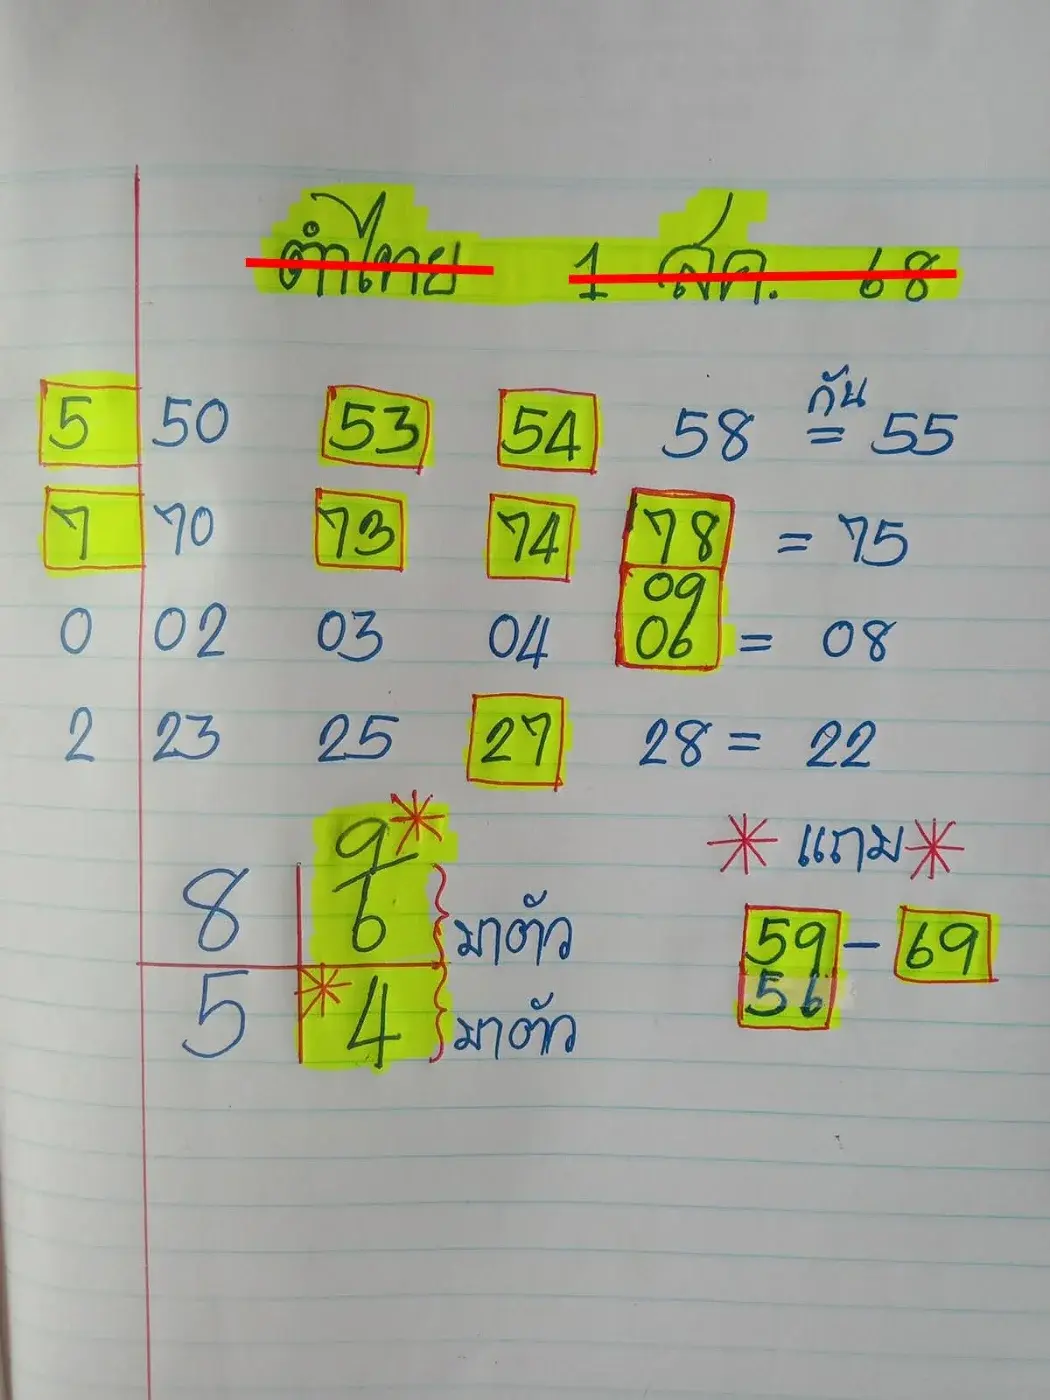 ตำไทย 1 สค. 68
กัน
5 50 53 54 58 = 55
7 70 73 74 78 = 75
09
0 02 03 04 06 = 08
2 23 25 27 28 = 22
9 * แถม *
8 6 } มาตัว 59 - 69
5 4 } มาตัว 56